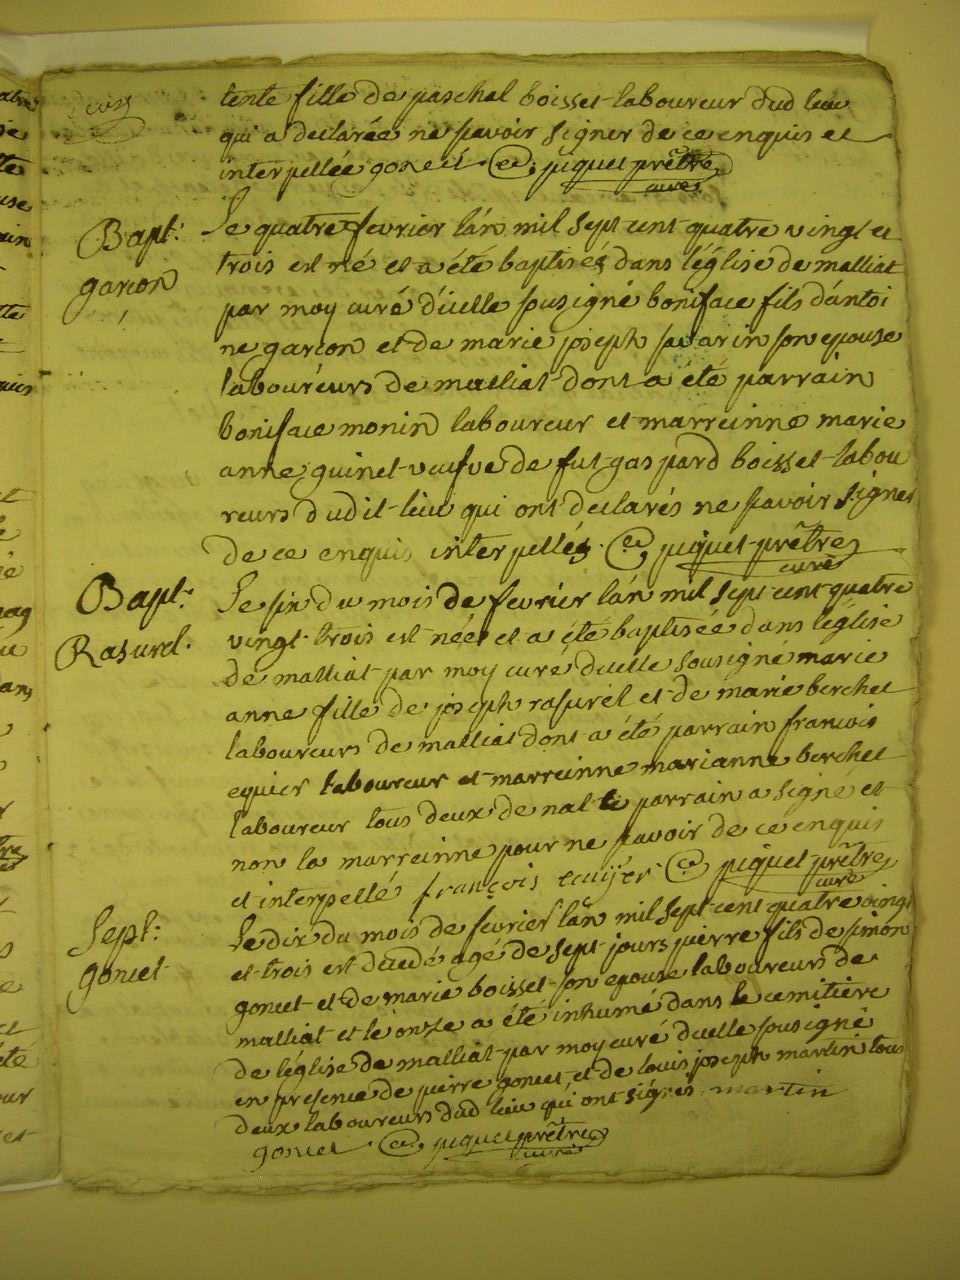 tente fille de paschal boisset laboureur dud lieu
qui a declarée ne savoir signer de ce enquis et
interpellée goncet piquet prêtre
curé
Bapt:
garçon
Le quatre fevrier l'an mil sept cent quatre vingt et
trois est né et a été baptisé dans l'église de malliat
par moy curé d'icelle sousigné boniface fils d'antoi
ne garçon et de marie joseph savarin son epouse
laboureurs de malliat dont a été parrain
boniface monin laboureur et marreinne marie
anne guinet veufve de fut gaspard boisset labou
reurs dudit lieu qui ont declarés ne savoir signer
de ce enquis interpellés piquet prêtre
curé
Bapt:
Rasurel.
Le six du mois de fevrier l'an mil sept cent quatre
vingt trois est née et a été baptisée dans l'église
de malliat par moy curé d'icelle sousigné marie
anne fille de joseph rasurel et de marie berchet
laboureurs de malliat dont a été parrain francois
equier laboureur et marreinne marianne berchet
laboureur tous deux de nat le parrain a signé et
non la marreinne pour ne savoir de ce enquis
et interpellé françois piquet prêtre
curé
Sept:
goncet
Le dix du mois de fevrier l'an mil sept cent quatre vingt
et trois est decedé agé de sept jours pierre fils de simon
goncet et de marie boisset son epouse laboureurs de
malliat et le onse a été inhumé dans le cemitière
de l'église de malliat par moy curé d'icelle sousigné
en presence de pierre goncet et de louis joseph martin tous
deux laboureurs dud lieu qui ont signés martin
goncet piquet prêtre
curé